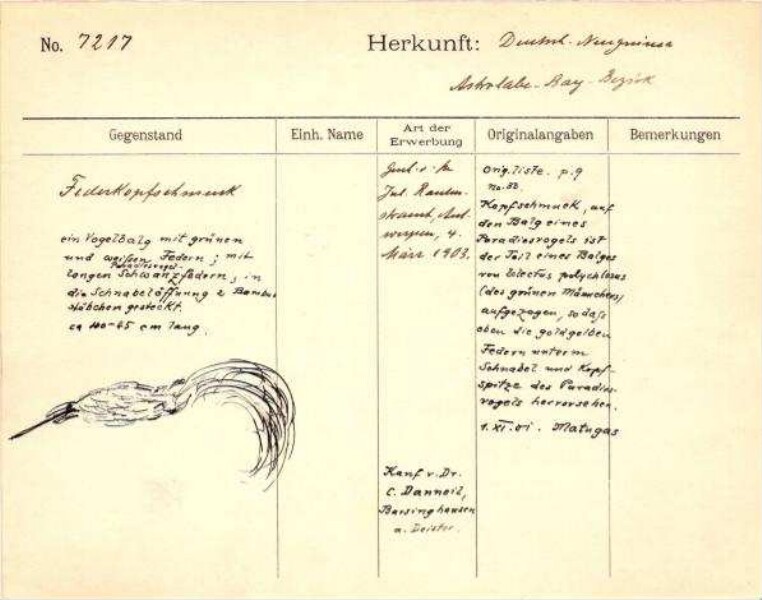 No. 7217
Herkunft: Deutsch-Neuguinea
Astrolabe-Bay-Bezirk
Gegenstand
Einh. Name
Art der Erwerbung
Originalangaben
Bemerkungen
Federkopfschmuck
ein Vogelbalg mit grünen
und weißen Federn; mit
langen Paradiesvogel-
Schwanzfedern, in
die Schnabelöffnung 2 Bambus
stäbchen gesteckt.
ca 40-45 cm lang.
Jul. Rauten-
strauch, Ant-
werpen, 4.
März 1903.
Kauf v. Dr.
C. Danneil,
Barsinghausen
a. Deister.
Orig. liste. p. 9
No. 38.
Kopfschmuck, auf
den Balg eines
Paradiesvogels ist
der Teil eines Balges
von Eclectus polychlorus
(des grünen Männchens)
aufgezogen, sodaß
eben die goldgelben
Federn unterm
Schnabel und Kopf-
spitze des Paradies-
vogels hervorsehen.
1. XI. 01. Matugas